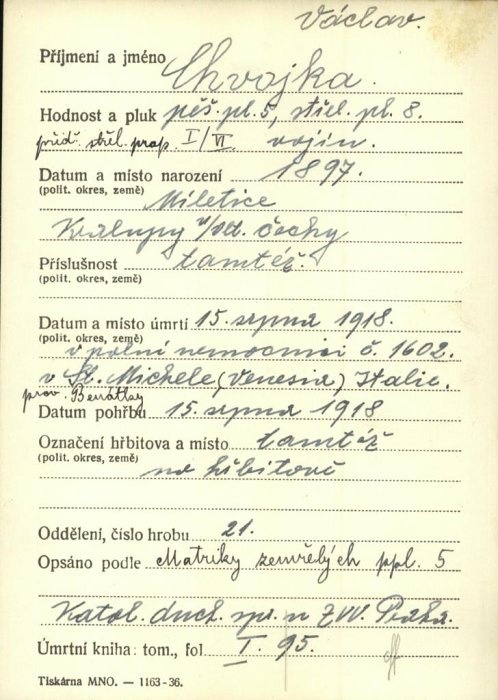 Václav.
Příjmení a jméno Chvojka.
Hodnost a pluk pěš. pl. 5, střel. pl. 8.
příd. střel. prap. I/VI vojín.
Datum a místo narození 1897.
(polit. okres, země) Miletice
Kralupy n/Vlt. Čechy
Příslušnost tamtéž.
(polit. okres, země)
Datum a místo úmrtí 15. srpna 1918.
(polit. okres, země) v polní nemocnici č. 1602.
v St. Michele (Venesia) Italie.
prov. Benátky
Datum pohřbu 15. srpna 1918
Označení hřbitova a místo tamtéž
(polit. okres, země) na hřbitově
Oddělení, číslo hrobu 21.
Opsáno podle Matriky zemřelých ppl. 5
Katol. duch. spr. u ZVV. Praha.
Úmrtní kniha: tom., fol. I. 95.
Tiskárna MNO. — 1163-36.